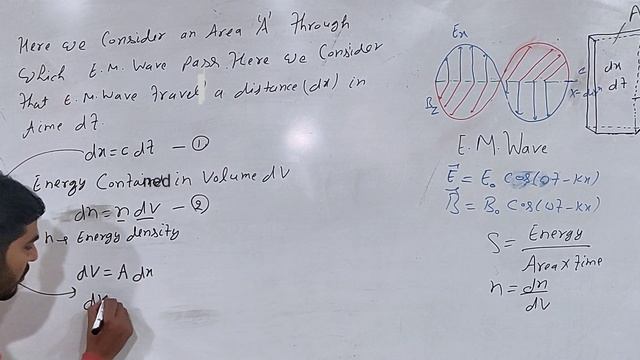 Here we Consider an Area 'A' Through
which E.M. Wave pass. Here we Consider
That E.M. Wave Travel a distance (dx) in
a time dt.
dx = c dt — ①
Energy Contained in Volume dV
dn = n dV — ②
n → Energy density
dV = A dx
dV
Ex
Bz
A
dx
dt
c
E.M. Wave
E⃗ = E₀ Cos(ωt - kx)
B⃗ = B₀ Cos(ωt - kx)
S = Energy / Area x time
n = dn / dV